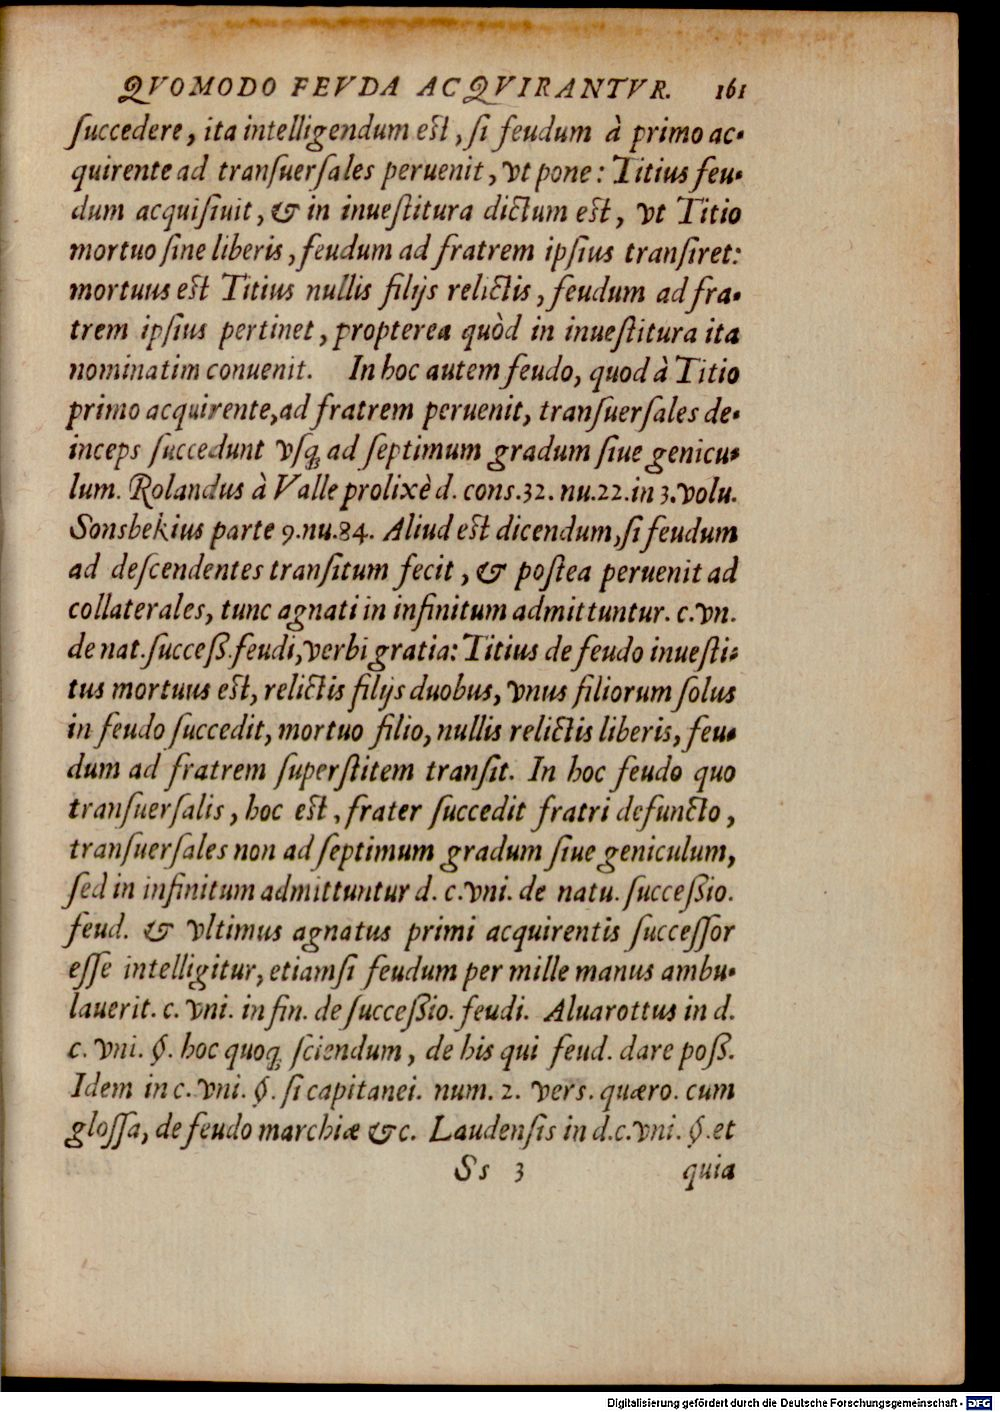 QVOMODO FEVDA ACQVIRANTVR. 161
ſuccedere, ita intelligendum eſt, ſi feudum à primo ac-
quirente ad tranſuerſales peruenit, vt pone: Titius feu-
dum acquiſiuit, & in inueſtitura dictum eſt, vt Titio
mortuo ſine liberis, feudum ad fratrem ipſius tranſiret:
mortuus eſt Titius nullis filijs relictis, feudum ad fra-
trem ipſius pertinet, propterea quòd in inueſtitura ita
nominatim conuenit. In hoc autem feudo, quod à Titio
primo acquirente, ad fratrem peruenit, tranſuerſales de-
inceps ſuccedunt vſq₃ ad ſeptimum gradum ſiue genicu-
lum. Rolandus à Valle prolixè d. cons.32. nu.22.in 3.volu.
Sonsbekius parte 9.nu.84. Aliud eſt dicendum, ſi feudum
ad deſcendentes tranſitum fecit, & poſtea peruenit ad
collaterales, tunc agnati in infinitum admittuntur. c.vn.
de nat.ſucceß.feudi, verbi gratia: Titius de feudo inueſti-
tus mortuus eſt, relictis filijs duobus, vnus filiorum ſolus
in feudo ſuccedit, mortuo filio, nullis relictis liberis, feu-
dum ad fratrem ſuperſtitem tranſit. In hoc feudo quo
tranſuerſalis, hoc eſt, frater ſuccedit fratri defuncto,
tranſuerſales non ad ſeptimum gradum ſiue geniculum,
ſed in infinitum admittuntur d. c.vni. de natu. ſucceßio.
feud. & vltimus agnatus primi acquirentis ſucceſſor
eſſe intelligitur, etiamſi feudum per mille manus ambu-
lauerit. c. vni. in fin. de ſucceßio. feudi. Aluarottus in d.
c. vni. §. hoc quoq₃ ſciendum, de his qui feud. dare poß.
Idem in c. vni. §. ſi capitanei. num. 2. vers. quæro. cum
gloſſa, de feudo marchiæ &c. Laudenſis in d.c.vni. §.et
Ss 3 quia
Digitalisierung gefördert durch die Deutsche Forschungsgemeinschaft - DFG